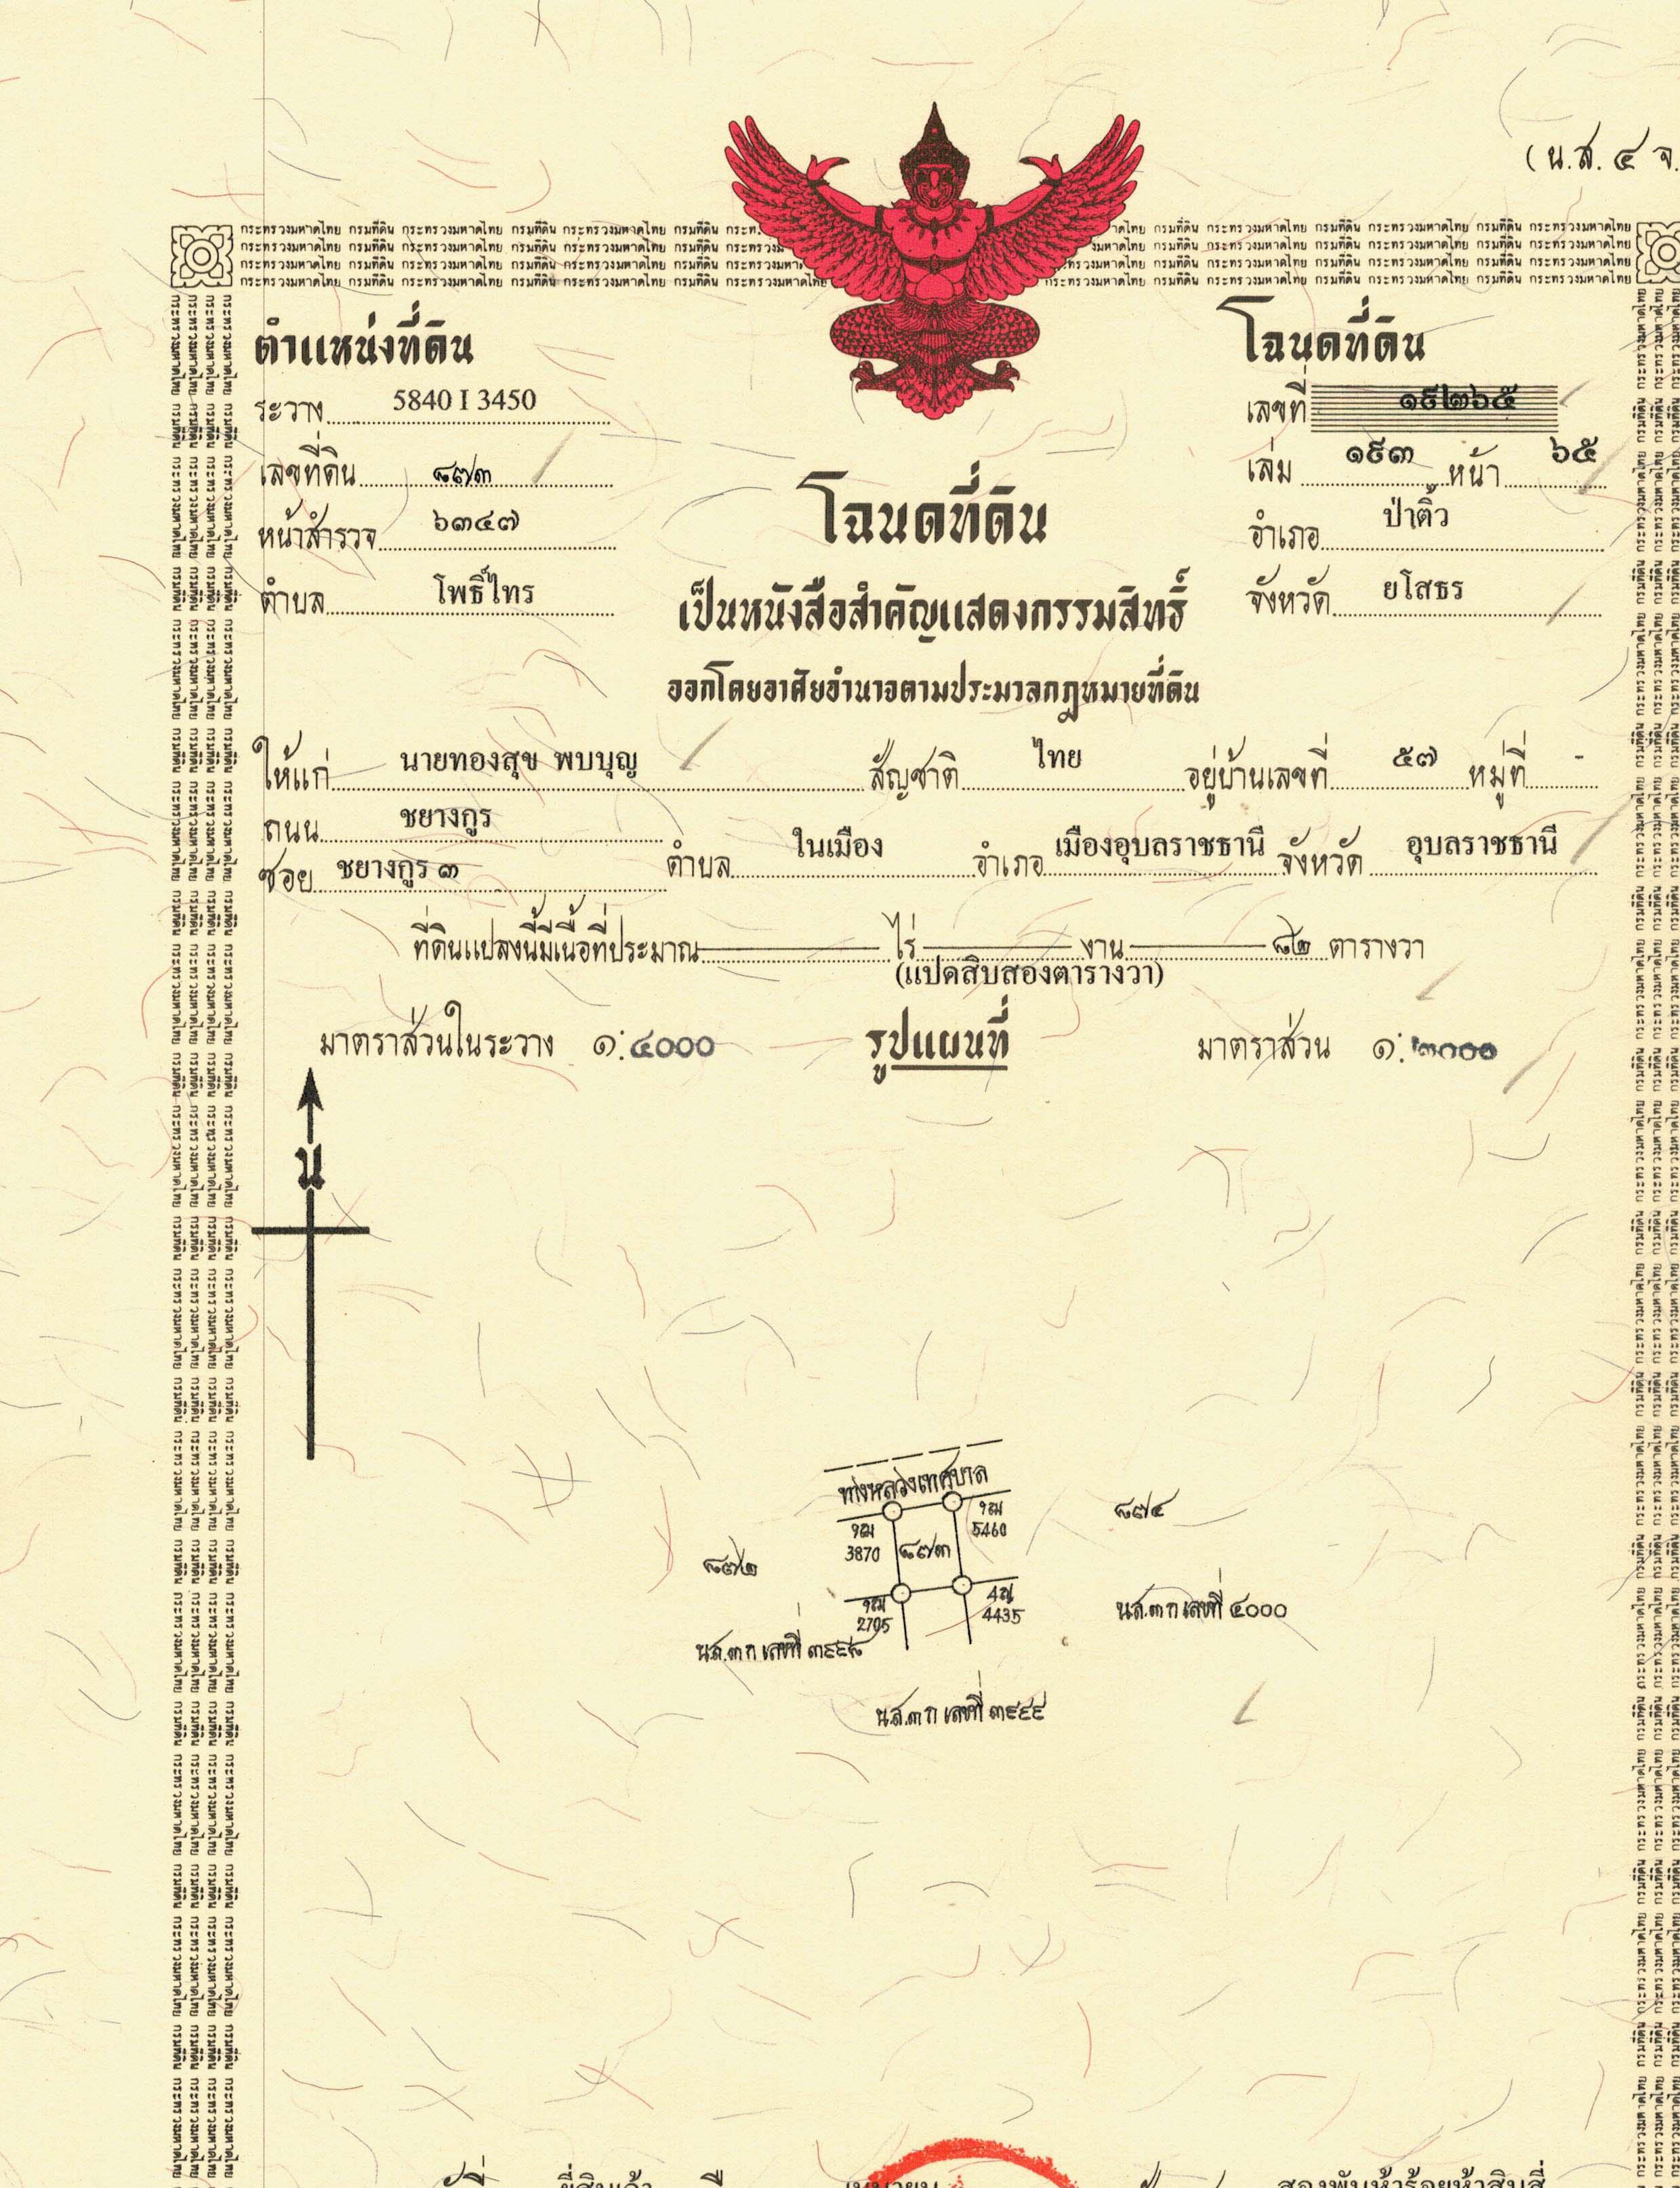 (น.ส. ๔ จ.
กระทรวงมหาดไทย กรมที่ดิน กระทรวงมหาดไทย กรมที่ดิน กระทรวงมหาดไทย กรมที่ดิน
ตำแหน่งที่ดิน
โฉนดที่ดิน
ระวาง 5840 I 3450
เลขที่ ๑๙๒๖๕
เลขที่ดิน ๘๗๓
เล่ม ๑๙๓ หน้า ๖๕
โฉนดที่ดิน
หน้าสำรวจ ๖๓๔๗
อำเภอ ป่าติ้ว
ตำบล โพธิ์ไทร
จังหวัด ยโสธร
เป็นหนังสือสำคัญแสดงกรรมสิทธิ์
ออกโดยอาศัยอำนาจตามประมวลกฎหมายที่ดิน
ให้แก่ นายทองสุข พบบุญ สัญชาติ ไทย อยู่บ้านเลขที่ ๕๗ หมู่ที่ -
ถนน ชยางกูร
ซอย ชยางกูร ๓ ตำบล ในเมือง อำเภอ เมืองอุบลราชธานี จังหวัด อุบลราชธานี
ที่ดินแปลงนี้มีเนื้อที่ประมาณ ไร่ งาน ๘๒ ตารางวา
(แปดสิบสองตารางวา)
มาตราส่วนในระวาง ๑:๔๐๐๐
รูปแผนที่
มาตราส่วน ๑:๒๐๐๐
น
ทางหลวงเทศบาล
5460
๘๗๔
3870
๘๗๓
๘๗๒
2705
4435
น.ส.๓ ก เลขที่ ๔๐๐๐
น.ส.๓ ก เลขที่ ๓๙๙๘
น.ส.๓ ก เลขที่ ๓๙๙๙
สองพันห้าร้อยห้าสิบสี่